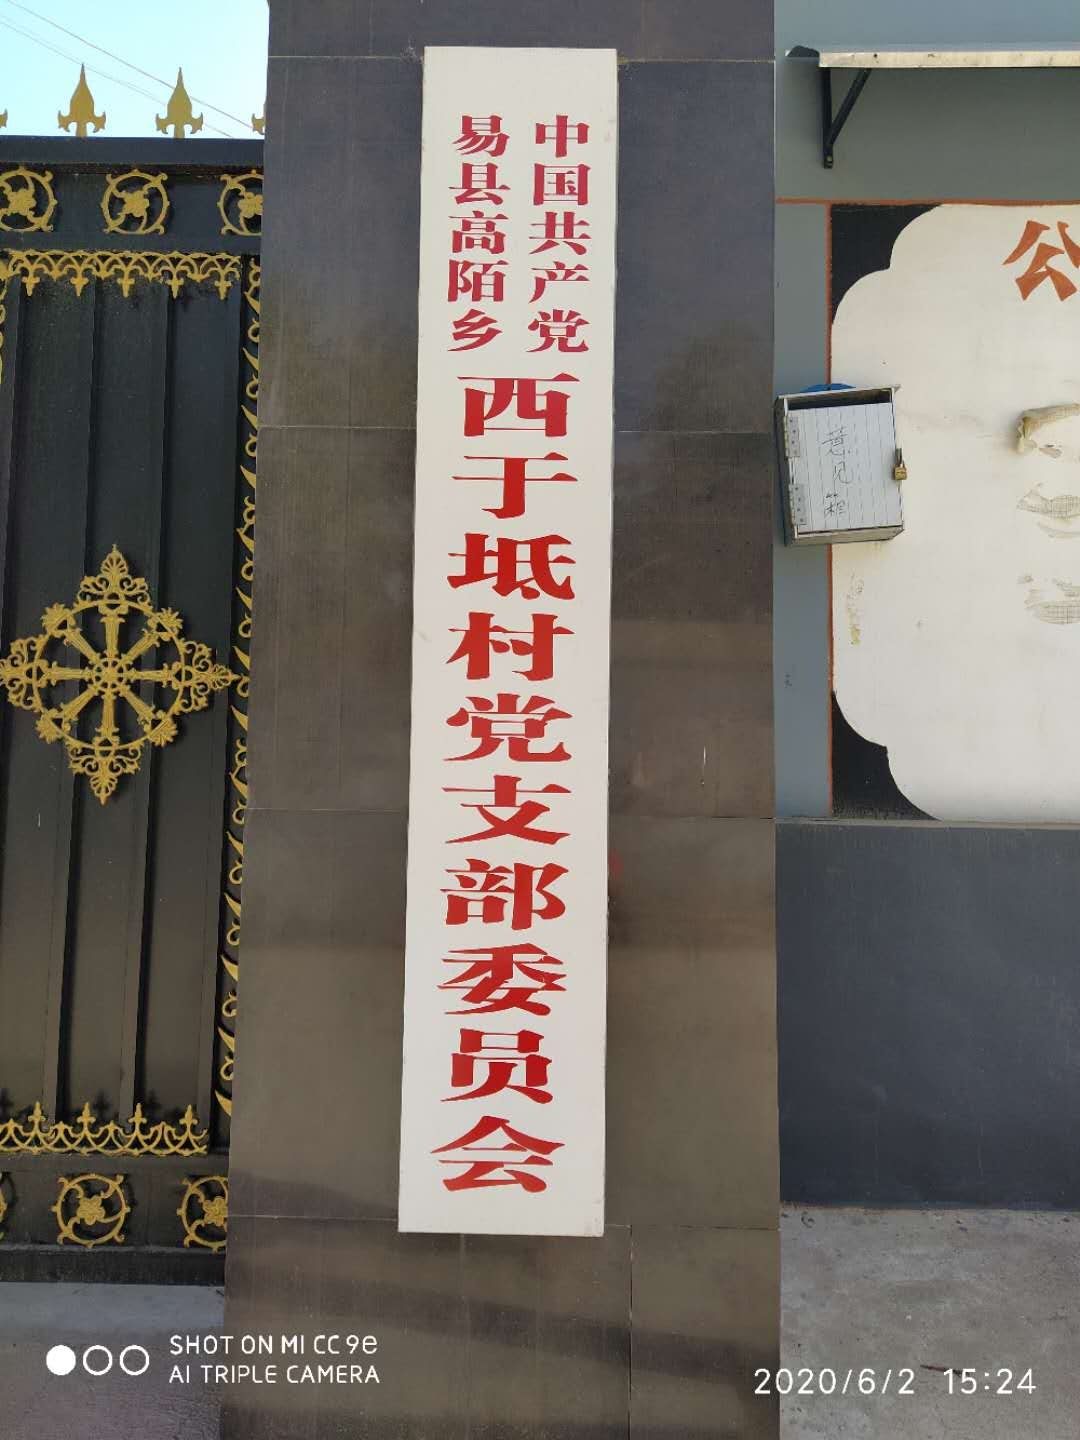 中国共产党
易县高陌乡
西于坻村党支部委员会
公
意见箱
SHOT ON MI CC 9e
AI TRIPLE CAMERA
2020/6/2 15:24